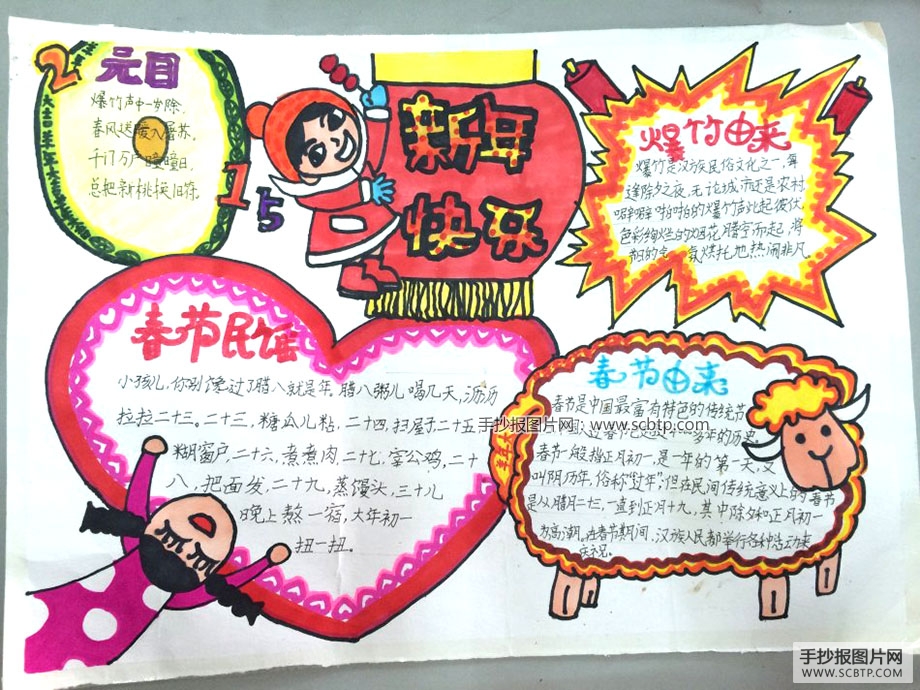 2
元旦
爆竹声中一岁除,
春风送暖入屠苏.
千门万户曈曈日,
总把新桃换旧符.
15
新年
快乐
爆竹由来
爆竹是汉族民俗文化之一,每
逢除夕之夜,无论城市还是农村
噼噼啪啪的爆竹声此起彼伏,
色彩绚烂的烟花腾空而起,将
节日的气氛烘托地热闹非凡
春节民谣
小孩儿,你别馋,过了腊八就是年,腊八粥儿喝几天,沥沥
拉拉二十三。二十三,糖瓜儿粘,二十四,扫屋子二十五
糊窗户,二十六,煮煮肉,二十七,宰公鸡,二十
八,把面发,二十九,蒸馒头,三十儿
晚上熬一宿,大年初一
扭一扭。
春节由来
春节是中国最富有特色的传统节
年的历史,
春节一般指正月初一,是一年的第一天,又
叫阴历年,俗称“过年”;但在民间传统意义上的春节
是从腊月二十三,一直到正月十九,其中除夕和正月初一
为高潮。在春节期间,汉族人民都举行各种活动来
庆祝。
手抄报图片网:www.scbtp.com
手抄报图片网
WWW.SCBTP.COM